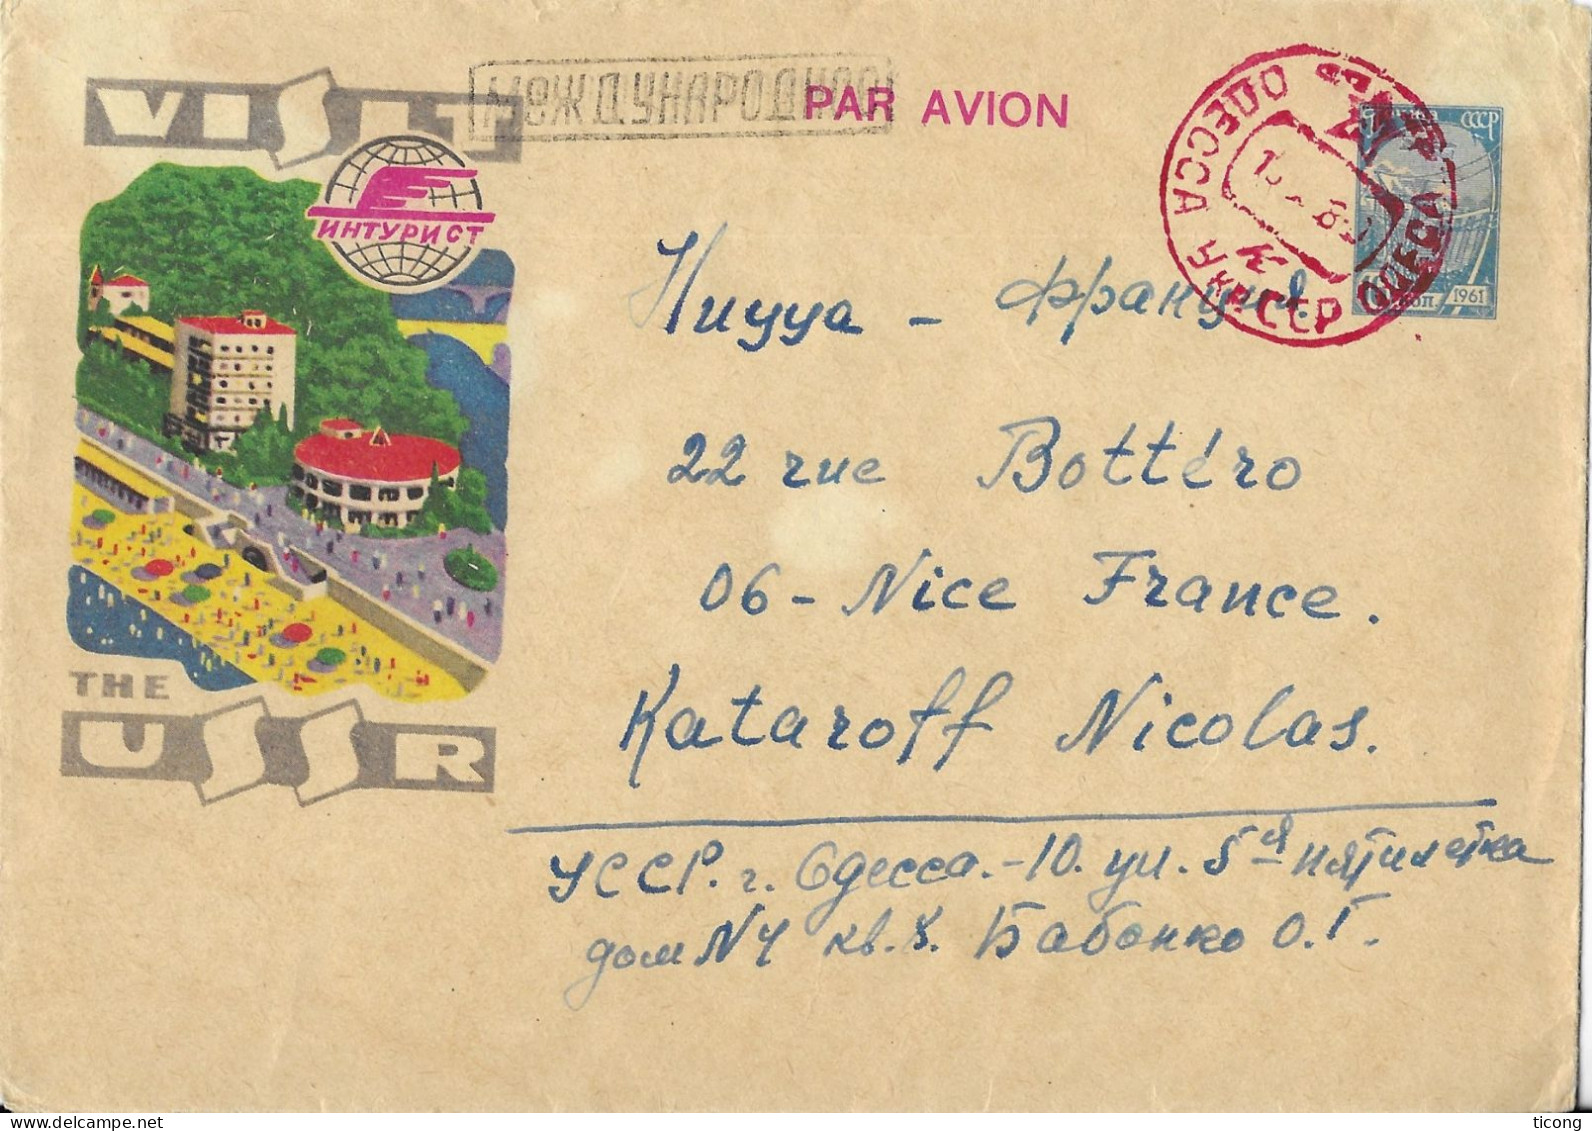 VISIT
МЕЖДУНАРОДНОЕ
PAR AVION
ИНТУРИСТ
ОДЕССА УКР. ССР ОДЕСА
СССР
1961
Ницца - Франция.
22 rue Bottéro
06 - Nice France.
Kataroff Nicolas.
THE
USSR
УССР. г. Одесса.-10. ул. 5ая пятилетка
дом N4 кв. 8. Бабонко О.Г.
ticong